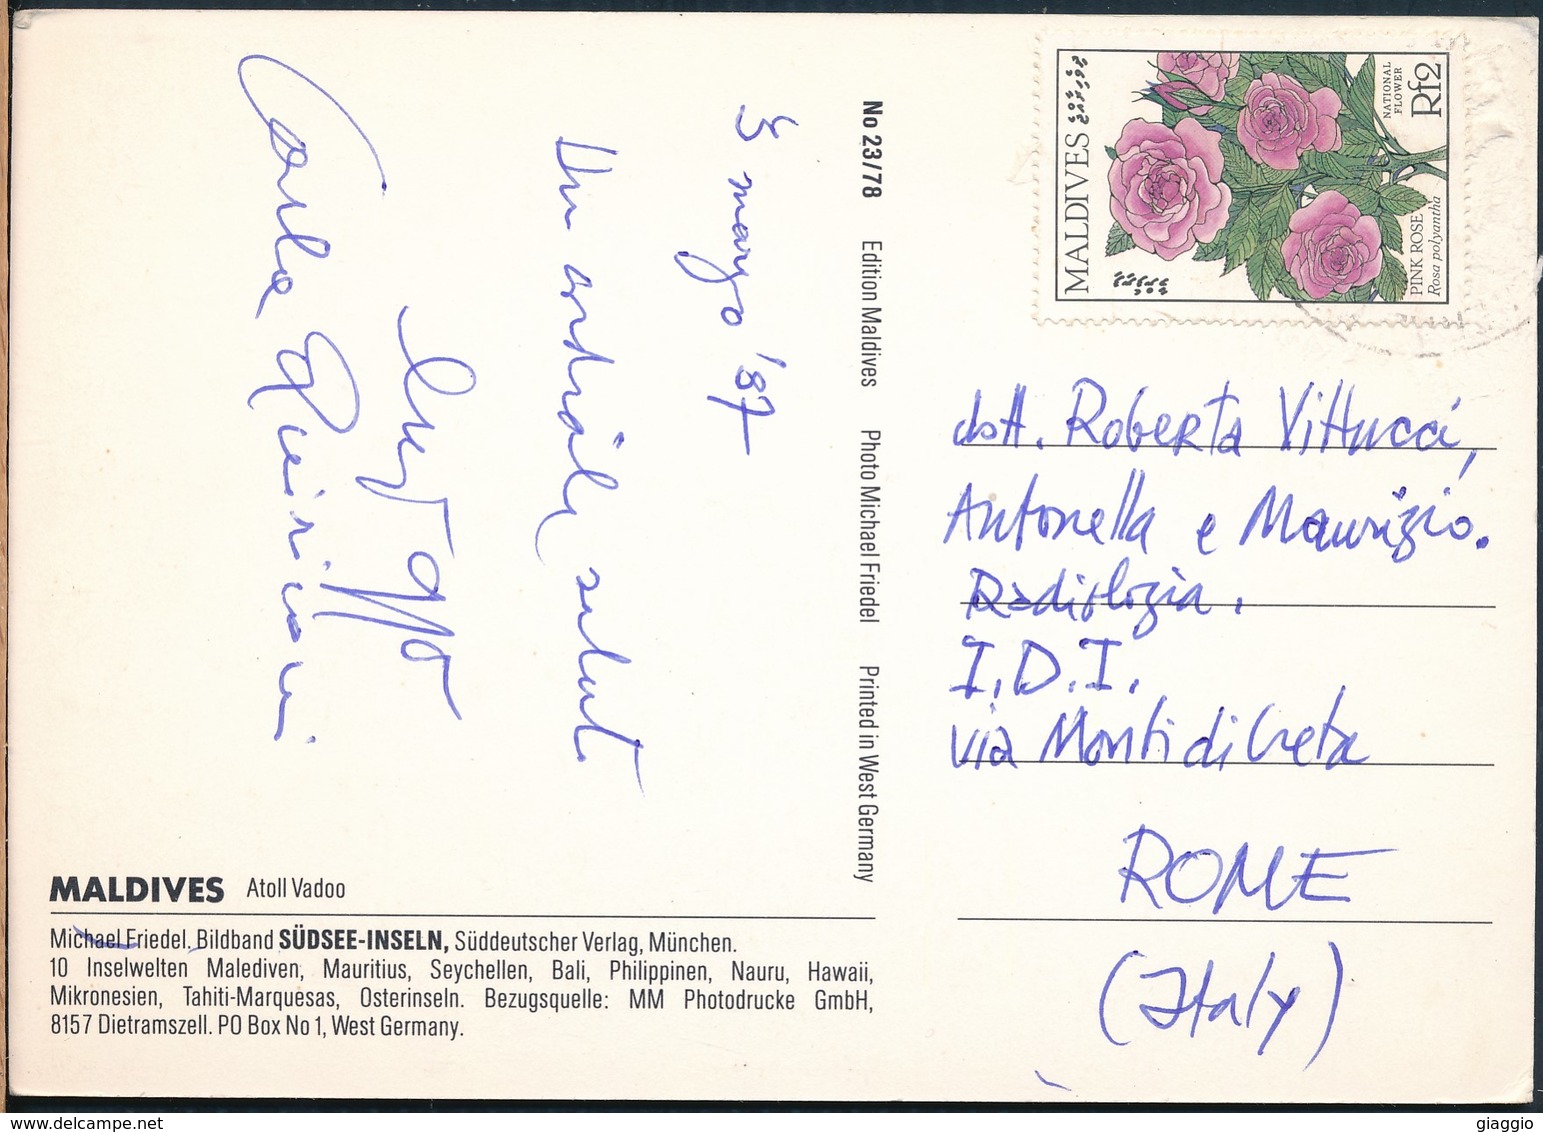 MALDIVES
NATIONAL
FLOWER
Rf2
PINK ROSE
Rosa polyantha
No 23/78 Edition Maldives Photo Michael Friedel Printed in West Germany
marzo '87
Un cordiale saluto
Carla
dott. Roberta Vittucci,
Antonella e Maurizio.
Radiologia.
I.D.I.
via Monti di Creta
ROME
(Italy)
MALDIVES Atoll Vadoo
Michael Friedel. Bildband SÜDSEE-INSELN, Süddeutscher Verlag, München.
10 Inselwelten Malediven, Mauritius, Seychellen, Bali, Philippinen, Nauru, Hawaii,
Mikronesien, Tahiti-Marquesas, Osterinseln. Bezugsquelle: MM Photodrucke GmbH,
8157 Dietramszell. PO Box No 1, West Germany.
delcampe.net
giaggio